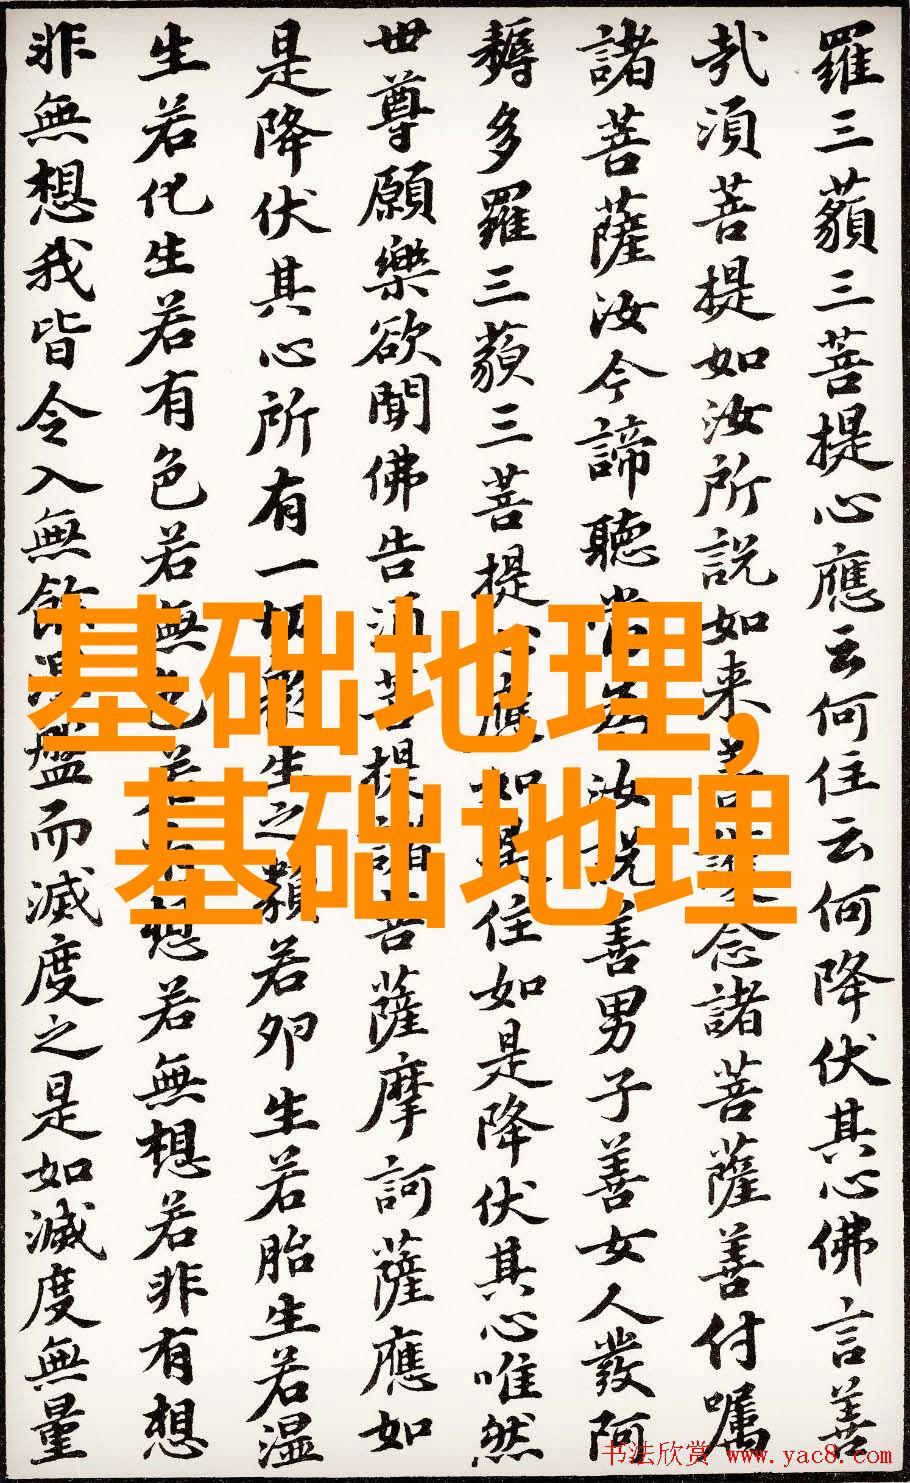 羅三藐三菩提心應云何住云何降伏其心佛言善
哉須菩提如汝所説如来善護念諸菩薩善付囑
諸菩薩汝今諦聽當為汝説善男子善女人發阿
耨多羅三藐三菩提心應如是住如是降伏其心唯然
世尊願樂欲聞佛告須菩提諸菩薩摩訶薩應如
是降伏其心所有一切眾生之類若卵生若胎生若温
生若化生若有色若無色若有想若無想若非有想
非無想我皆令入無餘涅盤而滅度之是如滅度無量
基础地理,
基础地理
书法欣赏 www.yac8.com